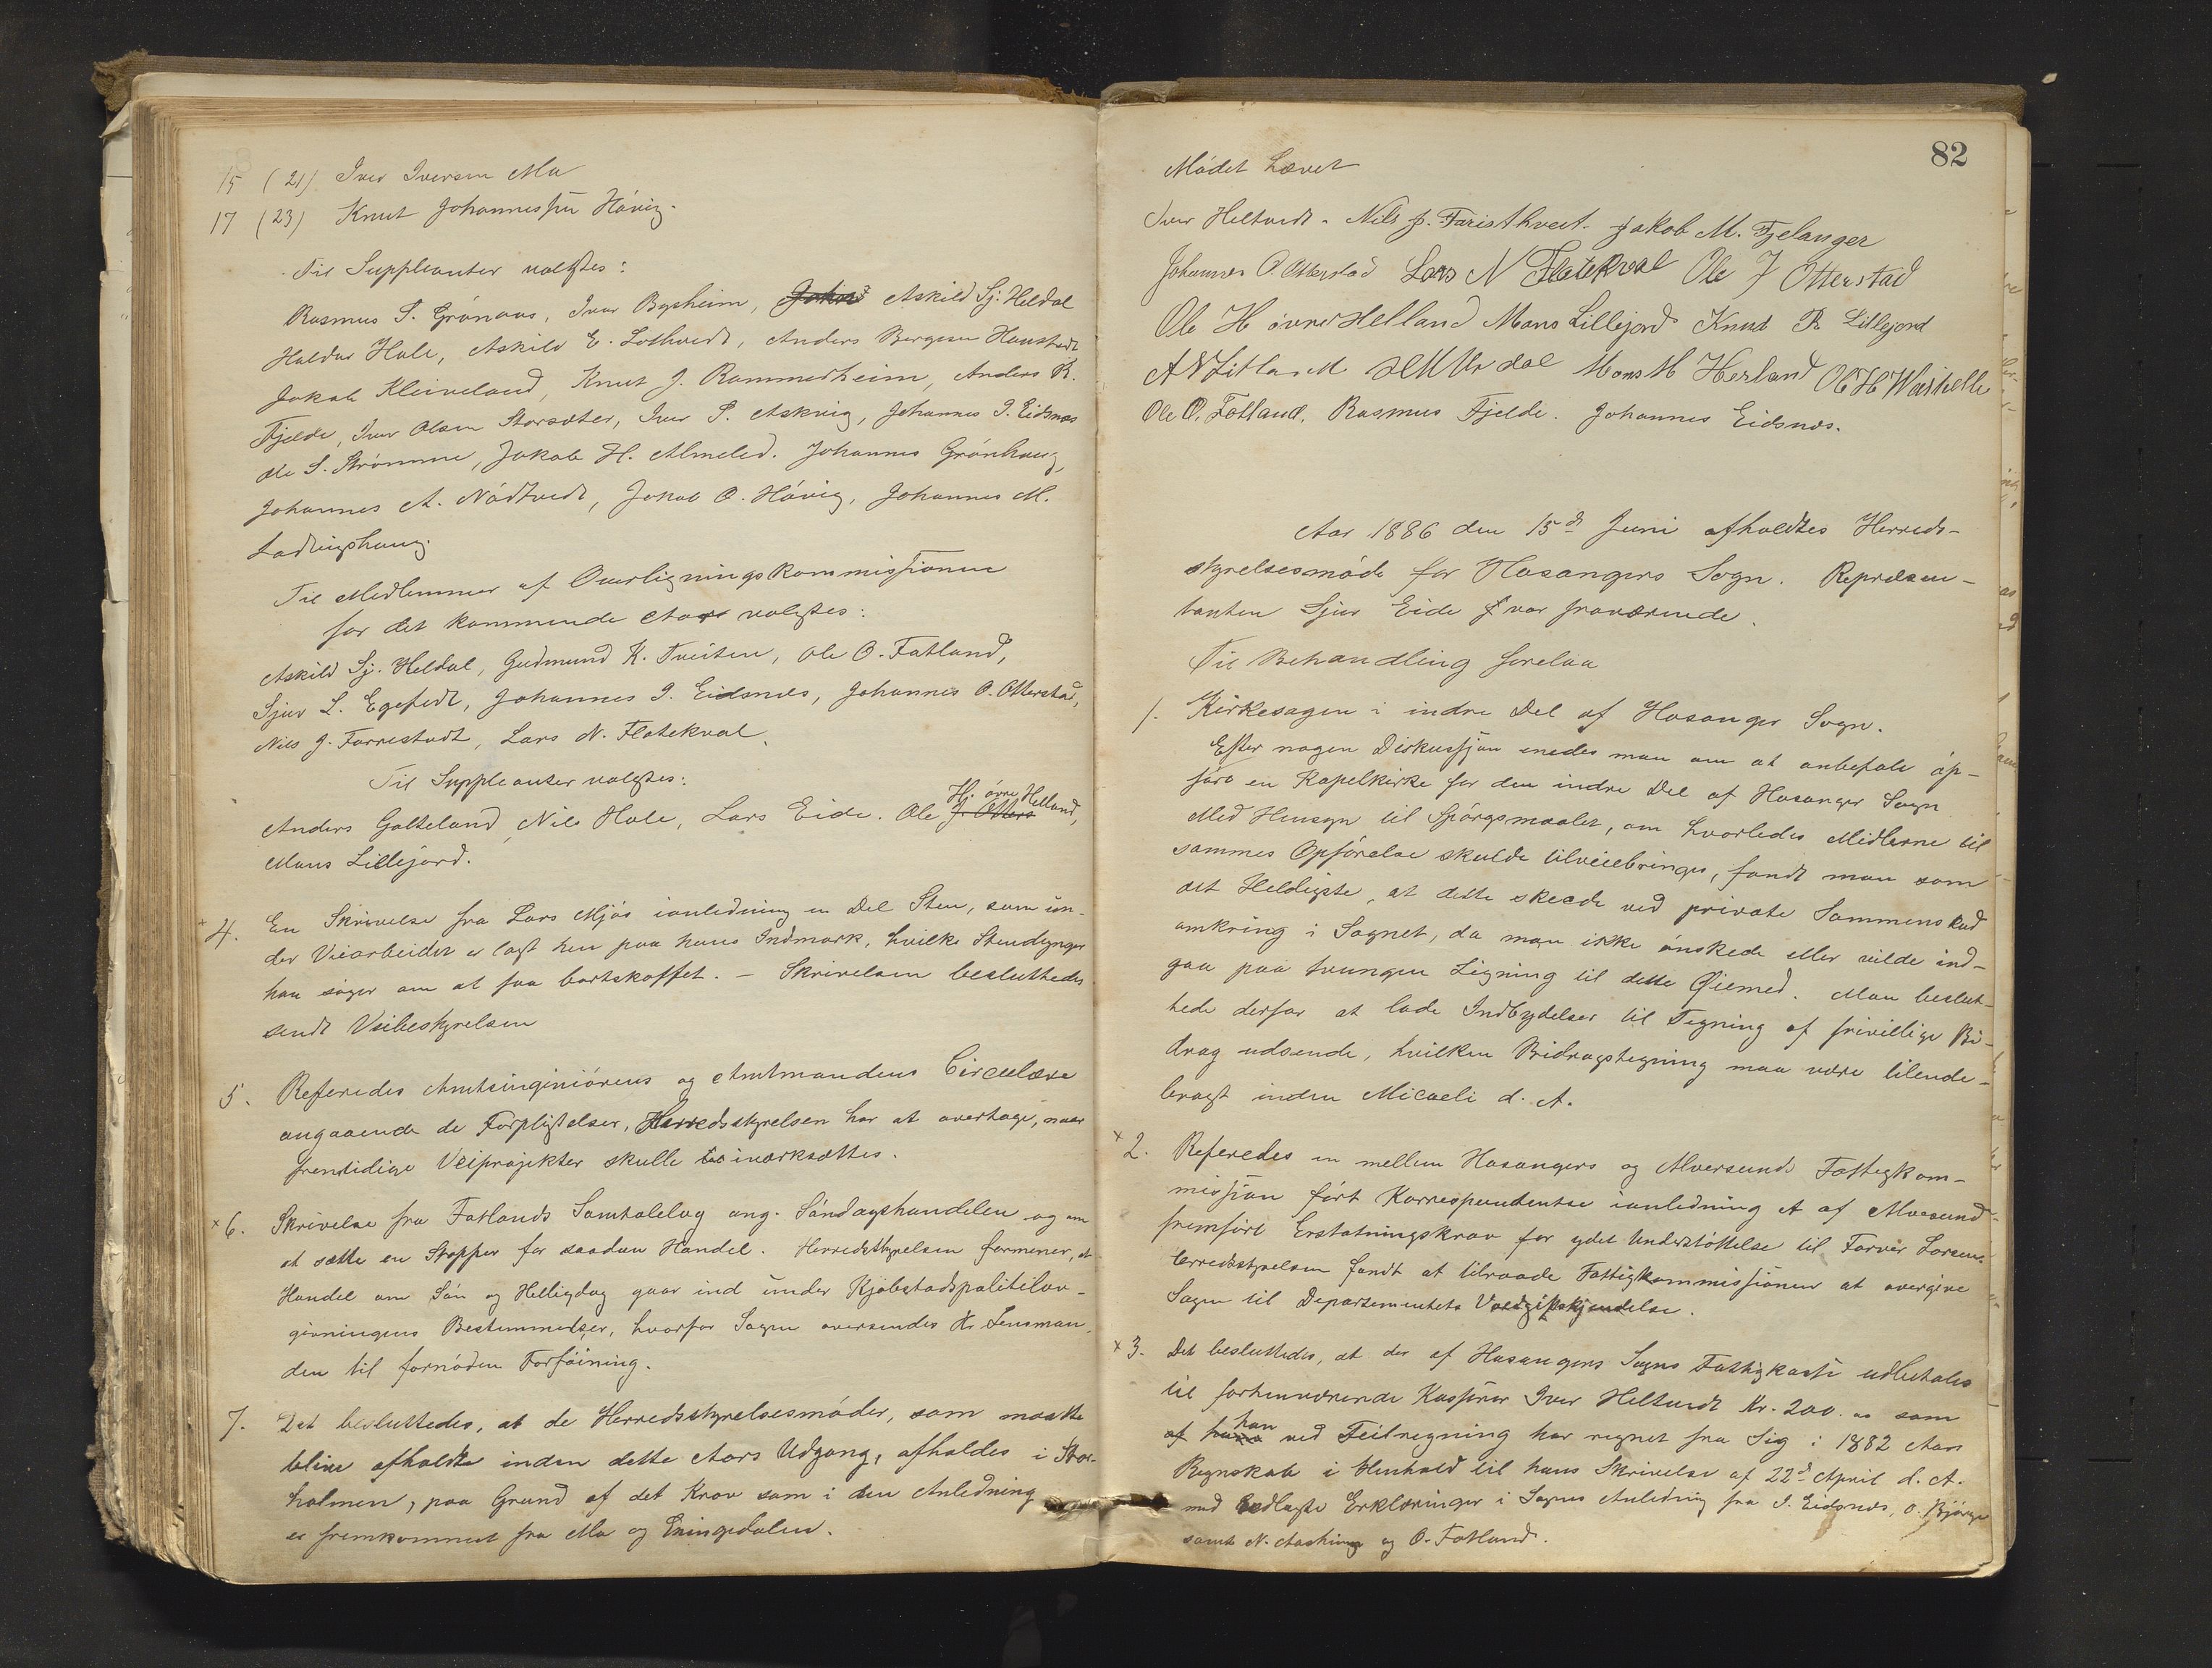 15 (21) Iver Iversen Mo
17 (23) Knut Johannessen Håvig.
Til Suppleanter valgtes:
Rasmus S. Grönaas, Ivar Bysheim, Askild Sj. Heldal
Haldor Hole, Askild E. Lothvedt, Anders Bergesen Haustvedt
Jakob Kleiveland, Knut J. Rammerheim, Anders R.
Fjelde, Iver Olsen Storsæter, Iver P. Askvig, Johannes I. Eidsnæs
Ole S. Strömme, Jakob H. Almelid. Johannes Grönhaug,
Johannes A. Nådtvedt, Jakob O. Håvig, Johannes M.
Ladingshaug.
Til Medlemmer af Overligningskommissionen
for det kommende Aar valgtes:
Askild Sj. Heldal, Gudmund K. Tveiten, Ole O. Fatland,
Sjur L. Egetvedt, Johannes I. Eidsnæs, Johannes O. Otterstad,
Nils J. Farrestvedt, Lars N. Flatekval.
Til Suppleanter valgtes:
Anders Galteland, Nils Hole, Lars Eide. Ole J. Otters H. övre Helland,
Mons Lillejord.
× 4. En Skrivelse fra Lars Mjös ianledning en Del Sten, som un-
der Veiarbeidet er lagt hen paa hans Indmark, hvilke Stendynger
han söger om at faa bortskaffet. – Skrivelsen besluttedes
sendt Veibestyrelsen
5. Referedes Amtsinginiörens og Amtmandens Circulære
angaaende de Forpligtelser, Herredsstyrelsen har at overtage, naar
fremtidige Veiprojekter skulle iværksættes.
× 6. Skrivelse fra Fatlands Samtalelag ang. Söndagshandelen og om
at sætte en Stopper for saadan Handel. Herredsstyrelsen formener, at
Handel om Sön og Helligdag gaar ind under Kjöbstadspolitilov-
givningens Bestemmelser, hvorfor Sagen oversendes Hr Lensman-
den til fornöden Forföining.
7. Det besluttedes, at de Herredsstyrelsesmöder, som maatte
blive afholdte inden dette Aars Udgang, afholdes i Stor-
holmen, paa Grund af det Krav som i den Anledning
er fremkommet fra Mo og Eningedalen.
82
Mödet hævet
Iver Heltvedt. Nils J. Faristhveit. Jakob M. Fjelanger
Johannes O. Otterstad Lars N Flatekval Ole J Otterstad
Ole H övre Helland Mons Lillejord Knud R Lillejord
Mons M Herland
Ole O. Fotland. Rasmus Fjelde. Johannes Eidsnes.
Aar 1886 den 15de Juni afholdtes Herreds-
styrelsesmöde for Hosangers Sogn. Repræsen-
tanten Sjur Eide var fraværende.
Til Behandling forelaa
1. Kirkesagen i indre Del af Hosanger Sogn.
Efter nogen Diskussjon enedes man om at anbefale op-
fört en Kapelkirke for den indre Del af Hosanger Sogn
Med Hensyn til Spörgsmaalet, om hvorledes Midlerne til
sammes Opförelse skulde tilveiebringes, fandt man som
det Heldigste, at dette skede ved private Sammenskud
omkring i Sognet, da man ikke önskede eller vilde ind-
gaa paa tvungen Ligning til dette Øiemed. Man beslut-
tede derfor at lade Indbydelser til Tegning af frivillige Bi-
drag udsende, hvilken Bidragstegning maa være tilende-
bragt inden Micaeli d. A.
× 2. Referedes en mellem Hosangers og Alversunds Fattigkom-
mission fört Korrespondentse ianledning et af Alversund
fremfört Erstatningskrav for ydet Understöttelse til Farver Larsen.
Herredsstyrelsen fandt at tilraade Fattigkommissionen at overgive
Sagen til Departementets Voldgiftskjendelse.
× 3. Det besluttedes, at der af Hosangers Sogns Fattigkasse udbetales
til forhenværende Kasserer Iver Heltvedt Kr. 200.00 som
af hans han ved Feilregning har regnet fra Sig i 1882 Aars
Regnskab i Henhold til hans Skrivelse af 22de April d. A.
med vedlagte Erklæringer i Sagens Anledning fra I. Eidsnæs, O. Bjørge
samt N. Aasheim og O. Fotland.